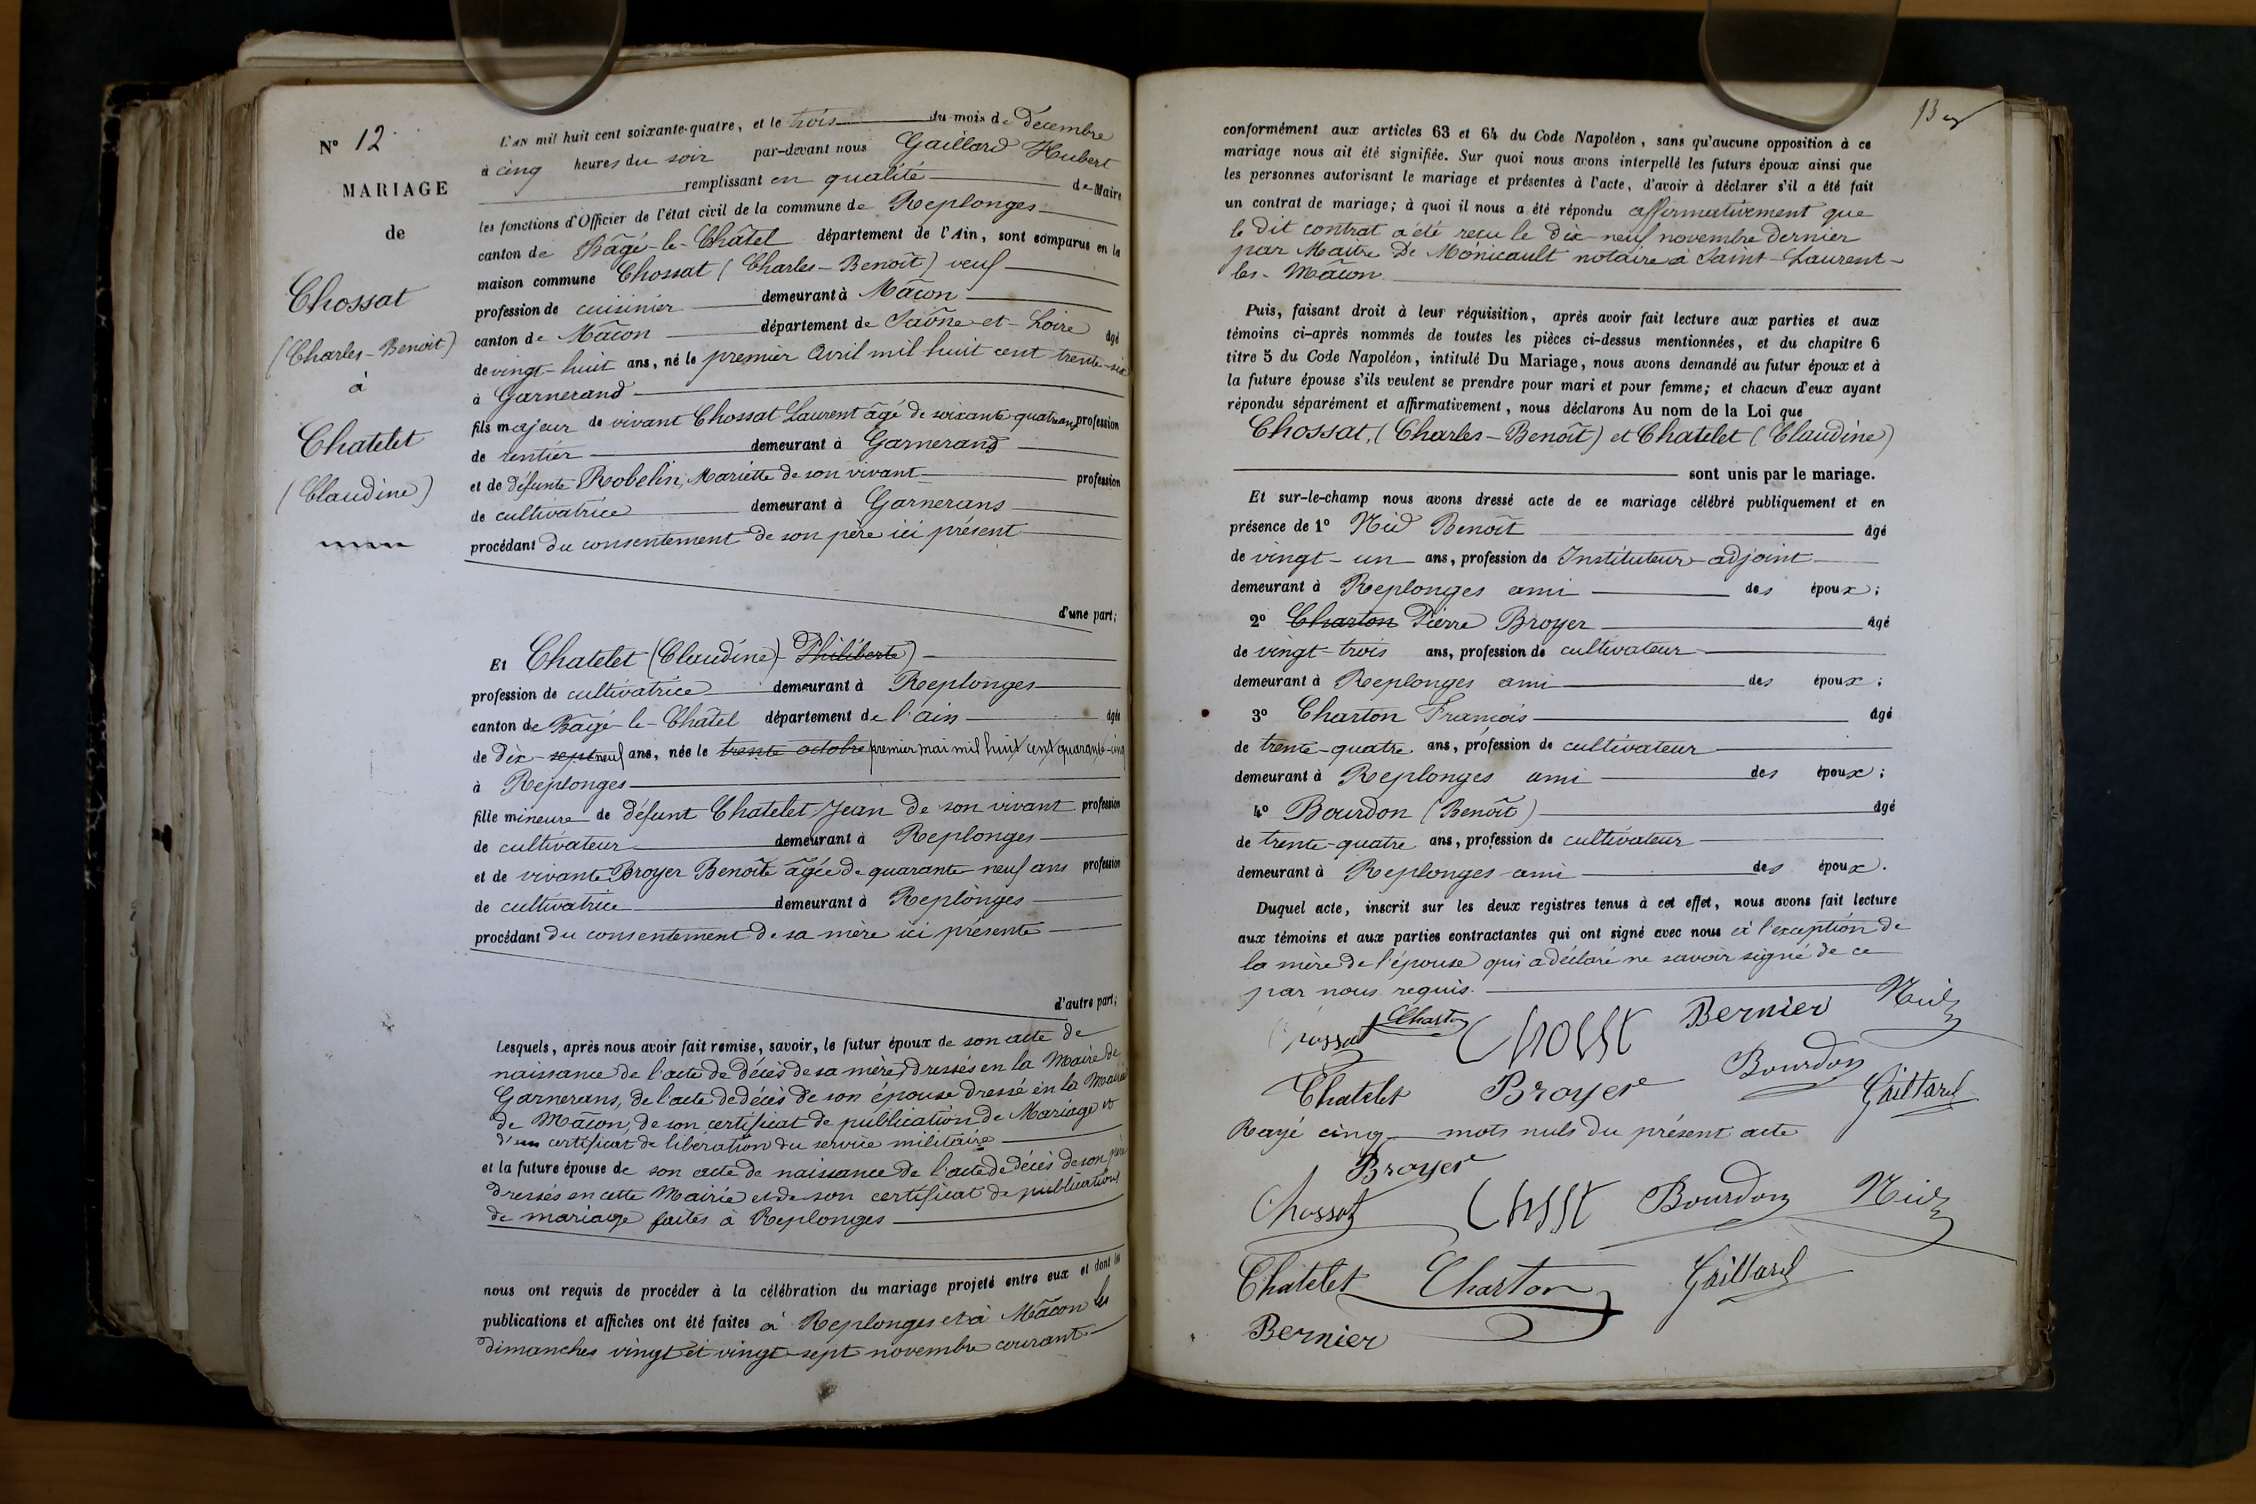 N° 12.
MARIAGE
de
Chossat
(Charles-Benoit)
à
Chatelet
(Claudine)
L'AN mil huit cent soixante-quatre, et le trois du mois de Décembre
à cinq heures du soir par-devant nous Gaillard Hubert
remplissant en qualité de Maire
les fonctions d'Officier de l'état civil de la commune de Replonges
canton de Bâgé-le-Châtel département de l'Ain, sont comparus en la
maison commune Chossat (Charles-Benoît) veuf
profession de cuisinier demeurant à Mâcon
canton de Mâcon département de Saône-et-Loire âgé
de vingt-huit ans, né le premier Avril mil huit cent trente-six
à Garnerand
fils majeur de vivant Chossat Laurent âgé de soixante quatre ans profession
de rentier demeurant à Garnerand
et de défunte Robelin, Mariette de son vivant profession
de cultivatrice demeurant à Garnerans
procédant du consentement de son père ici présent
d'une part;
Et Chatelet (Claudine)- Philiberte)
profession de cultivatrice demeurant à Replonges
canton de Bâgé-le-Châtel département de l'ain âgée
de Dix-sept neuf ans, née le trente octobre premier mai mil huit cent quarante-cinq
à Replonges
fille mineure de défunt Chatelet Jean de son vivant profession
de cultivateur demeurant à Replonges
et de vivante Broyer Benoîte âgée de quarante neuf ans profession
de cultivatrice demeurant à Replonges
procédant du consentement de sa mère ici présente
d'autre part;
Lesquels, après nous avoir fait remise, savoir, le futur époux de son acte de
naissance de l'acte de décès de sa mère, dressés en la Mairie de
Garnerans, de l'acte de décès de son épouse dressé en la Mairie
de Mâcon, de son certificat de publication de Mariage et
d'un certificat de libération du service militaire
et la future épouse de son acte de naissance de l'acte de décès de son père
dressés en cette Mairie et de son certificat de publications
de mariage faites à Replonges
nous ont requis de procéder à la célébration du mariage projeté entre eux et dont les
publications et affiches ont été faites à Replonges et à Mâcon les
dimanches vingt et vingt-sept novembre courant
conformément aux articles 63 et 64 du Code Napoléon, sans qu'aucune opposition à ce
mariage nous ait été signifiée. Sur quoi nous avons interpellé les futurs époux ainsi que
les personnes autorisant le mariage et présentes à l'acte, d'avoir à déclarer s'il a été fait
un contrat de mariage; à quoi il nous a été répondu affirmativement que
le dit contrat a été reçu le dix-neuf novembre dernier
par Maitre De Mónicault notaire à Saint-Laurent-
les-Mâcon
Puis, faisant droit à leur réquisition, après avoir fait lecture aux parties et aux
témoins ci-après nommés de toutes les pièces ci-dessus mentionnées, et du chapitre 6
titre 5 du Code Napoléon, intitulé Du Mariage, nous avons demandé au futur époux et à
la future épouse s'ils veulent se prendre pour mari et pour femme; et chacun d'eux ayant
répondu séparément et affirmativement, nous déclarons Au nom de la Loi que
Chossat, (Charles-Benoît) et Chatelet (Claudine)
sont unis par le mariage.
Et sur-le-champ nous avons dressé acte de ce mariage célébré publiquement et en
présence de 1° Nid Benoît âgé
de vingt-un ans, profession de Instituteur-adjoint
demeurant à Replonges ami des époux;
2° Charton Pierre Broyer âgé
de vingt-trois ans, profession de cultivateur
demeurant à Replonges ami des époux;
3° Charton François âgé
de trente-quatre ans, profession de cultivateur
demeurant à Replonges ami des époux;
4° Bourdon (Benoît) âgé
de trente-quatre ans, profession de cultivateur
demeurant à Replonges ami des époux.
Duquel acte, inscrit sur les deux registres tenus à cet effet, nous avons fait lecture
aux témoins et aux parties contractantes qui ont signé avec nous à l'exception de
la mère de l'épouse qui a déclaré ne savoir signé de ce
par nous requis.
Chossat Charton Bernier Nid
Chatelet Broyer Bourdon Gaillard
Rayé cinq mots nuls du présent acte
Broyer
Chossat Bourdon Nid
Chatelet Charton Gaillard
Bernier